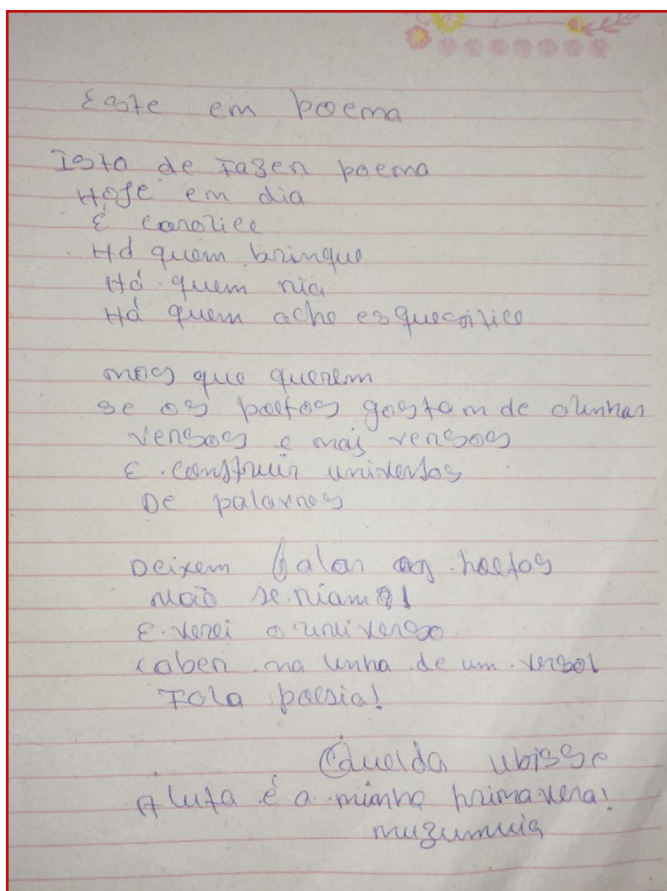 Este em poema
Isto de Fazer poema
Hoje em dia
É carolice
Há quem brinque
Há quem ria
Há quem ache esquesitice
mas que querem
se os poetas gostam de alinhar
versos e mais versos
E construir universos
De palavras
Deixem falar os poetas
Não se riam!
E verei o universo
caber na unha de um verso!
Fala poesia!
Quelda ubisse
A luta é a minha primavera!
muzumuia